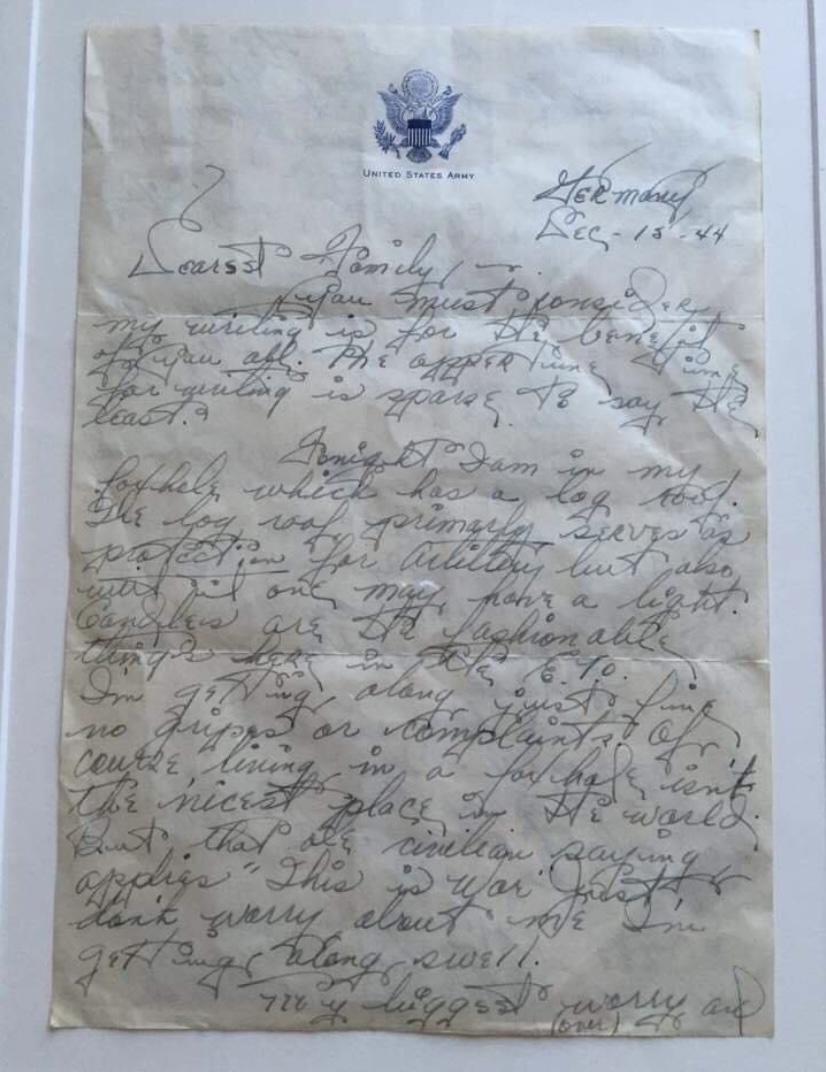 UNITED STATES ARMY
Germany
Dec - 15 - 44
Dearest Family,
You must consider
my writing is for the benefit
of you all. The opper tune time
for writing is sparse to say the
least.
Tonight I am in my
foxhole which has a log roof.
The log roof primarly serves as
protection for artillery but also
with it one may have a light.
Candles are the fashionable
things here in the E.T.O.
I'm getting along just fine
no gripes or complaints. Of
course living in a foxhole isn't
the nicest place in the world.
But that ole civilian saying
applies "This is War. Just
don't worry about me I'm
getting along swell.
My biggest worry
(over)